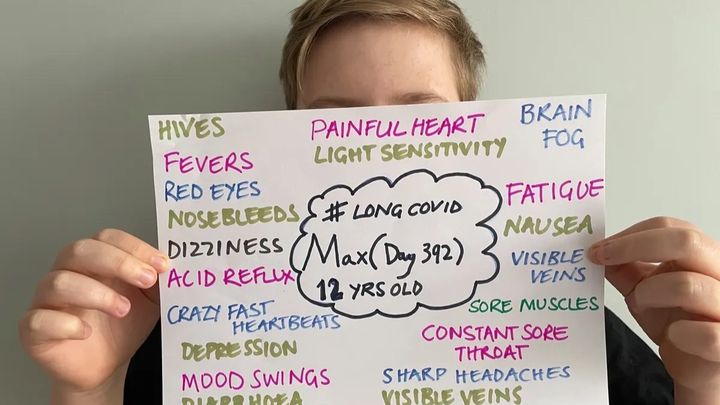 HIVES
PAINFUL HEART
BRAIN
FOG
LIGHT SENSITIVITY
FEVERS
RED EYES
NOSEBLEEDS
DIZZINESS
ACID REFLUX
# LONG COVID
Max (Day 392)
12 YRS OLD
FATIGUE
NAUSEA
VISIBLE
VEINS
SORE MUSCLES
CRAZY FAST
HEARTBEATS
DEPRESSION
CONSTANT SORE
THROAT
MOOD SWINGS
SHARP HEADACHES
DIARRHOEA
VISIBLE VEINS